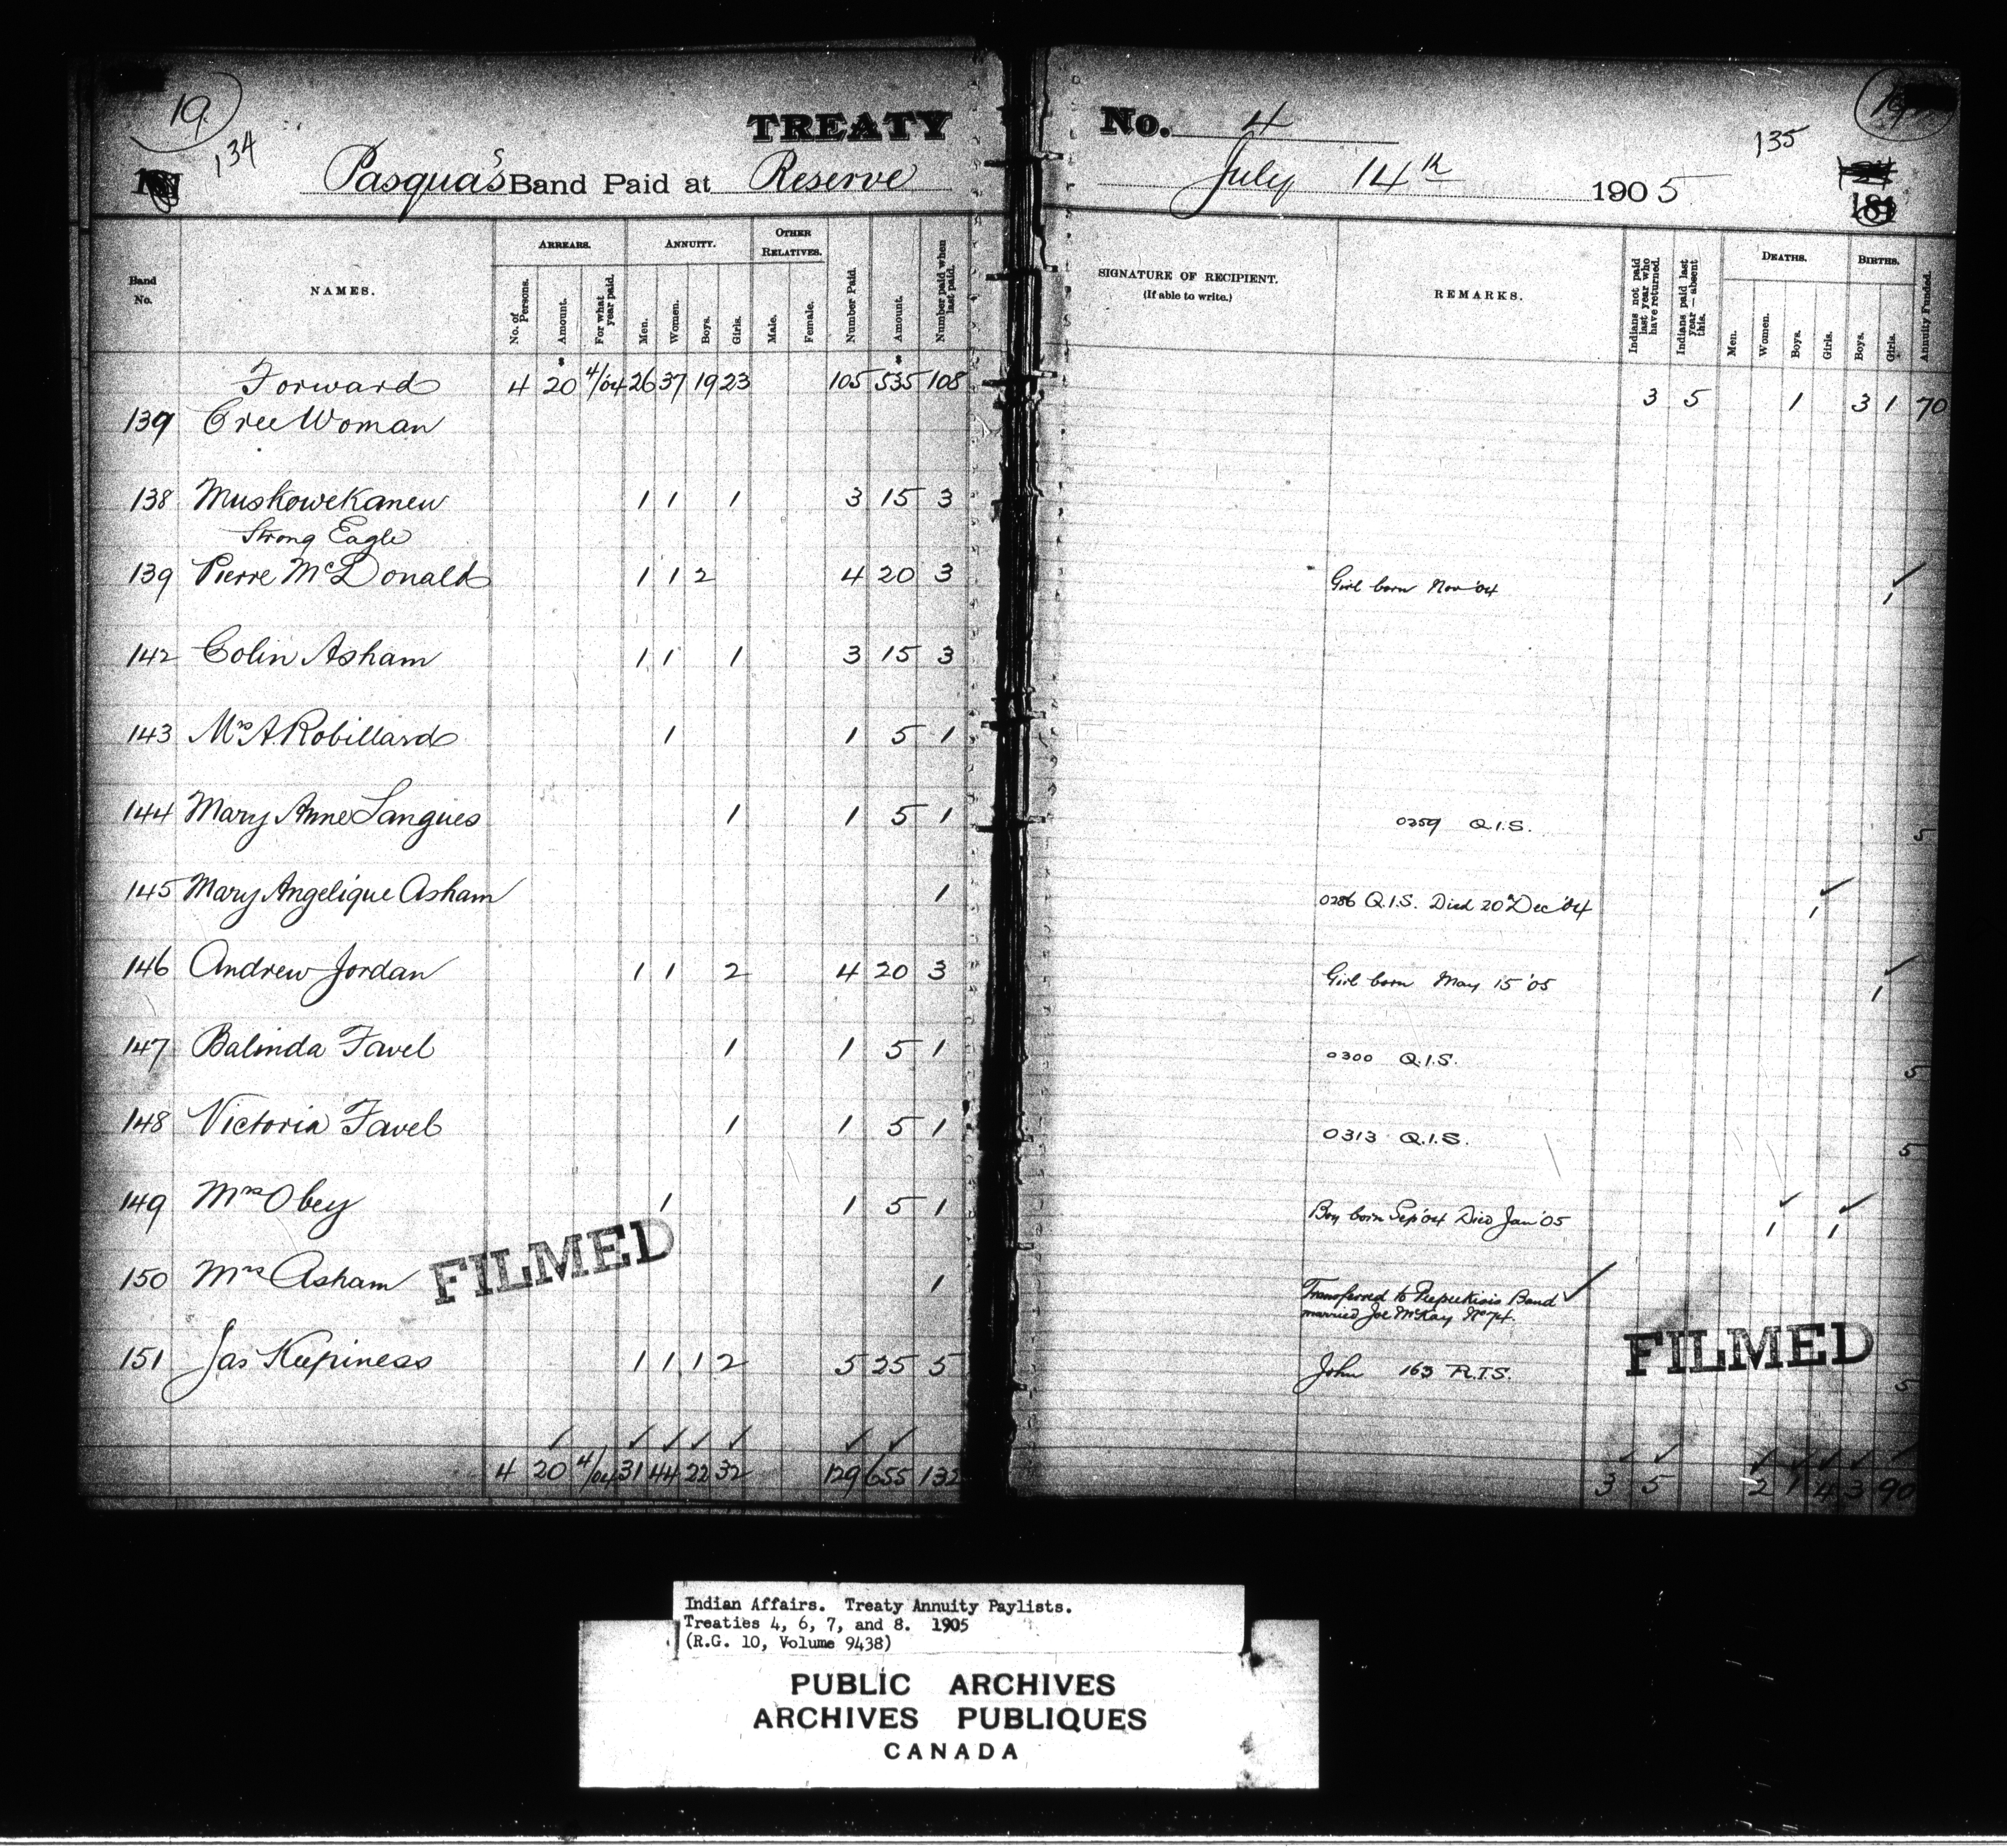 19
134
TREATY No. 4
135
Pasqua's Band Paid at Reserve July 14th 1905
181
Band No. NAMES. ARREARS. ANNUITY. OTHER RELATIVES. Number Paid. Amount. Number paid when last paid.
No. of Persons. Amount. For what year paid. Men. Women. Boys. Girls. Male. Female.
SIGNATURE OF RECIPIENT. (If able to write.) REMARKS. Indians not paid last year who have returned. Indians paid last year — absent this. DEATHS. BIRTHS. Annuity Funded.
Men. Women. Boys. Girls. Boys. Girls.
Forward 4 $20 4/04 26 37 19 23 105 $535 108 3 5 1 3 1 70
139 Cree Woman
138 Muskowekanew 1 1 1 3 15 3
Strong Eagle
139 Pierre McDonald 1 1 2 4 20 3 Girl born Nov '04 ✓ 1
142 Colin Asham 1 1 1 3 15 3
143 Mrs A. Robillard 1 1 5 1
144 Mary Anne Langues 1 1 5 1 0259 Q.I.S. 5
145 Mary Angelique Asham 1 0286 Q.I.S. Died 20 Dec '04 ✓ 1
146 Andrew Jordan 1 1 2 4 20 3 Girl born May 15 '05 ✓ 1
147 Balinda Favel 1 1 5 1 0300 Q.I.S. 5
148 Victoria Favel 1 1 5 1 0313 Q.I.S. 5
149 Mrs Obey 1 1 5 1 Boy born Sep '04 Died Jan '05 ✓ 1 ✓ 1
150 Mrs Asham 1 Transferred to Peepeekisis Band ✓
married Joe McKay No 74.
FILMED
FILMED
151 Jas Keepiness 1 1 1 2 5 25 5 John 163 R.I.S. 5
4 20 4/04 31 44 22 32 129 655 132 3 5 2 1 4 3 90
Indian Affairs. Treaty Annuity Paylists.
Treaties 4, 6, 7, and 8. 1905
(R.G. 10, Volume 9438)
PUBLIC ARCHIVES
ARCHIVES PUBLIQUES
CANADA